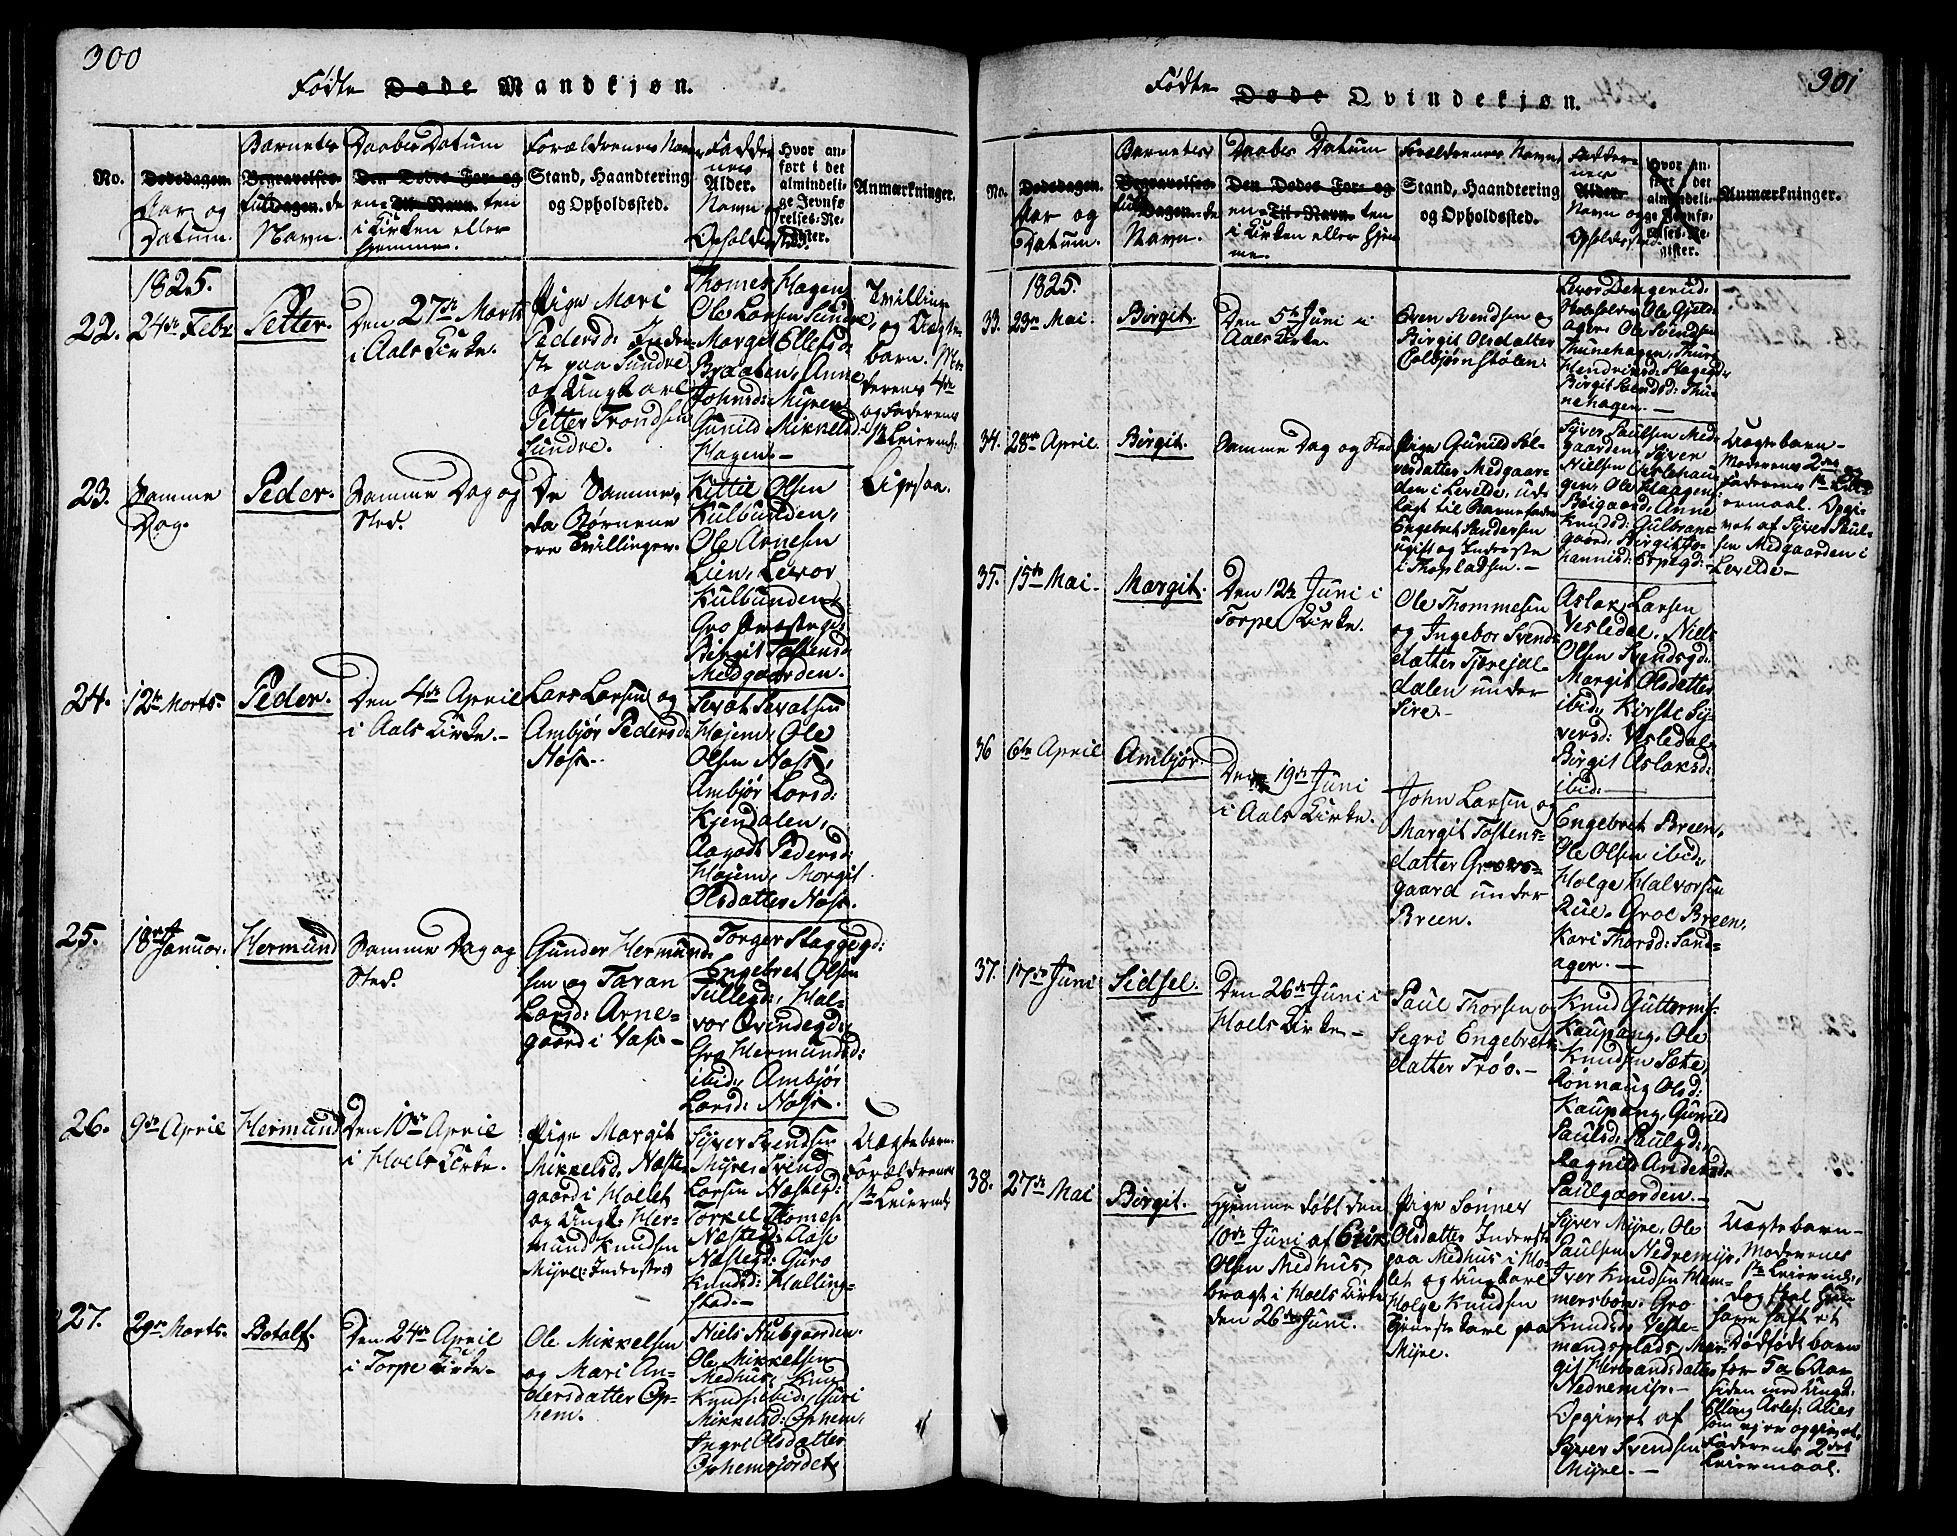 300
Fødte Døde Mandkjøn.
No.
Dødsdagen.
Aar og
Datum.
Barnets
Begravelses-
fuldagen.de
Navn.
Daabes Datum
Den Dødes For- og
en Til-Navn ten
i Kirken eller
hjemme.
Forældrenes Navn
Stand, Haandtering
og Opholdssted.
Faddernes
Alder.
Navn og
Opholdssted.
Hvor an-
ført i det
almindeli-
ge Jevnfø-
relses-Re-
gister.
Anmærkninger.
1825.
22.
24de Febr
Petter.
Den 27de Marts
i Aals Kirke.
Pige Mari
Pedersd: Inder-
ste paa Sundre
og Ungkarl
Petter Trondsen
Sundre.
Thomes Hagen,
Ole Larsen Sundre,
Margit Ellefsd:
Braaten, Anne
Johnsd: Myren,
Gunild Mikkelsd:
Hagen.-
Tvilling
og Uægte
barn. Mo-
derens 4de
og Faderens
1ste Leierm:
23.
Samme
Dag.
Peder.
Samme Dag og
Sted.
De Samme,
da Børnene
ere Tvillinger.
Kittil Olsen
Kulbunden,
Ole Arnesen
Lien, Levor
Kulbunden,
Gro Præstegd:
Birgit Tostensd:
Medgaarden.
Ligesaa.
24.
12te Marts.
Peder.
Den 4de April
i Aals Kirke.-
Lars Larsen og
Ambjør Pedersd:
Noss.
Sevat Sevatsen
Højem, Ole
Olsen Noss,
Ambjør Larsd:
Kjendalen,
Aagodt Pedersd:
Højem, Margit
Olsdatter Noss.
25.
18de Januar.
Hermund
Samme Dag og
Sted.
Gunder Hermund-
sen og Taran
Larsd: Arne-
gaard i Vats-
Torger Staggegd:
Engebret Olsen
Tullegd, Hal-
vor Qvindegd,
Gro Hermundsd:
ibid, Ambjør
Larsd: Noss.
26.
9de April
Hermund
Den 10de April
i Hoels Kirke.
Pige Margit
Mikkelsd: Næste-
gaard i Hollet
og Ungk: Her-
mund Knudsen
Myre: Inderster
Syver Svendsen
Myre, Svend
Larsen Næstegd:
Torkel Thomes:
Næstegd: Aase
Næstegd: Guro
Knudsd: Halling-
stad.-
Uægte barn
Forældrenes
1ste Leierm:
27.
29de Marts.
Botolf.
Den 24de April
i Torpe Kirke-
Ole Mikkelsen
og Mari An-
dersdatter Op-
hem.
Niels Nubgaarden.
Ole Mikkelsen
Medhus, Knud
Knudsen ibid, Guri
Mikkelsd: Ophem,
Ingri Olsdatter
Ophemsjordet.
301
Fødte Døde Qvindekjøn.
No.
Dødsdagen.
Aar og
Datum.
Barnets
Begravelses-
fulde Dagen. de
Navn.
Daabes Datum
Den Dødes For- og
en Til-Navn ten
i Kirken eller hjem-
me.
Forældrenes Navn,
Stand, Haandtering
og Opholdssted.
Fadder-
nes
Alder.
Navn og
Opholdssted.
Hvor an-
ført i det
almindeli-
ge Jevnfø-
relses-Re-
gister.
Anmærkninger.
1825.
33.
23de Mai.
Birgit.
Den 5te Juni i
Aals Kirke.
Even Svendsen og
Birgit Olsdatter
Colbjørnstølen.
Ole Svendsen
Thunehagen, Thure
Hendriksd: Hagen,
Birgit Svendsd: Thu-
nehagen.-
34.
28de April.
Birgit.
Samme Dag og Sted
Pige Gunild Syl-
vesdatter Medgaar-
den i Levelde, ud-
lagt til Barnefader
Engebret Andersen
ugift og Inderste
i Thopladsen.-
Syver Paulsen Med-
gaarden, Syver
Nielsen Gerlehau-
gen, Ole Haagens:
Bøigaard, Anne
Knudsd: Gulbran-
gaard, Birgit Jo-
hannisd: Erpegd:
Uægte barn-
Moderens 2det og
Faderens 1te Lei-
ermaal. Opgi-
vet af Syver Paul-
sen Medgaarden i
Levelde-
35.
15de Mai-
Margit.
Den 12te Juni i
Torpe Kirke.
Ole Thommesen
og Ingebor Svends-
datter Tjørejal-
dalen under
Sire.-
Aslak Larsen
Vesledal, Niels
Olsen Svendsgd:
Margit Olsdatter
ibid, Kirste Sy-
versd: Vesledal
Birgit Aslaksd:
ibid.-
36
6te April
Ambjør.
Den 19de Juni
i Aals Kirke.
John Larsen og
Margit Tostens-
datter Grøvs-
gaard under
Breen.
Engebret Breen,
Ole Olsen ibid,
Holge Halvorsen
Rue, Groe Breen,
Kari Thorsd: Sand-
ager.-
37.
17de Juni
Sidsel.
Den 26de Juni i
Hoels Kirke-
Paul Thorsen og
Segri Engebrets-
datter Trøo.-
Knud Guttormsen
Kaupang, Ole
Knudsen Sæte,
Rønnaug Olsd:
Kaupang, Gunild
Paulsd: Paulgd:
Ragnild Andersd:
Paulgaarden.-
38.
27de Mai
Birgit.
Hjemme døbt den
10de Juni af Erik
Olsen Medhus,
bragt i Hoels Kirke
den 26de Juni.
Pige Sønnev
Olsdatter Inderste
paa Medhus i Ho-
let og Ungkarl
Holge Knudsen
tjeneste karl paa
Myre.
Syver Myre, Ole
Paulsen Nedremyr,
Iver Knudsen Ham-
mersbøen. Gro
Knudsd: Veste-
mandsplads, Mar-
git Herbrandsdatter
Nedremyr.-
Opgivet af
Syver Svendsen
Myre.-
Uægte barn-
Moderenes
1te Leierm:,
dog skal hun
have haft et
Dødfødt barn
for 5 a 6 Aar
siden med Ungk:
Elling Arles: Aasen
som ej er opgivet,
Faderens 2det
Leiermaal.